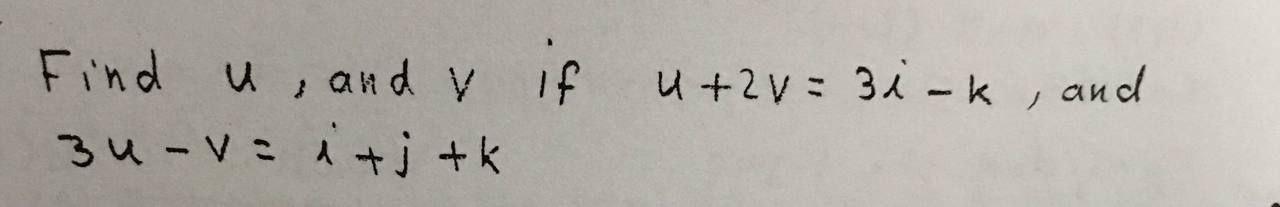 Find u, and v if u+2v = 3i - k, and
3u - v = i + j + k